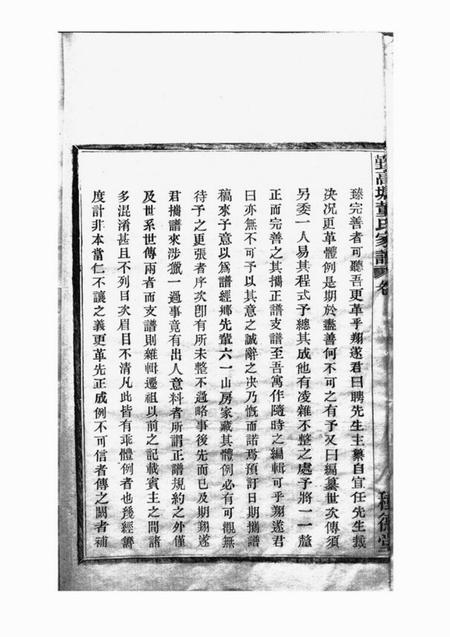 臻完善者可聽吾更革乎翔遂君曰聘先生主纂自宜任先生裁
決况更革體例是期於盡善何不可之有予又曰編纂世次傳須
另委一人易其程式予總其成他有凌雜不整之處予將一一釐
正而完善之其擕正譜支譜至吾寓作隨時之編輯可乎翔遂君
曰亦無不可予以其意之誠辭之決乃慨而諾焉預訂日期擕譜
稿來予意以爲譜經鄕先輩六一山房家藏其體例必有可觀無
待予之更張者序次卽有所未整不過略事後先而已及期翔遂
君擕譜來涉獵一過事竟有出人意料者所謂正譜規約之外僅
及世系世傳兩者而支譜則雜輯遷祖以前之記載賓主之間諸
多混淆甚且不列目次眉目不清凡此皆有乖體例者也幾經籌
度計非本當仁不讓之義更革先正成例不可信者傳之闕者補
高塘董氏家譜 卷